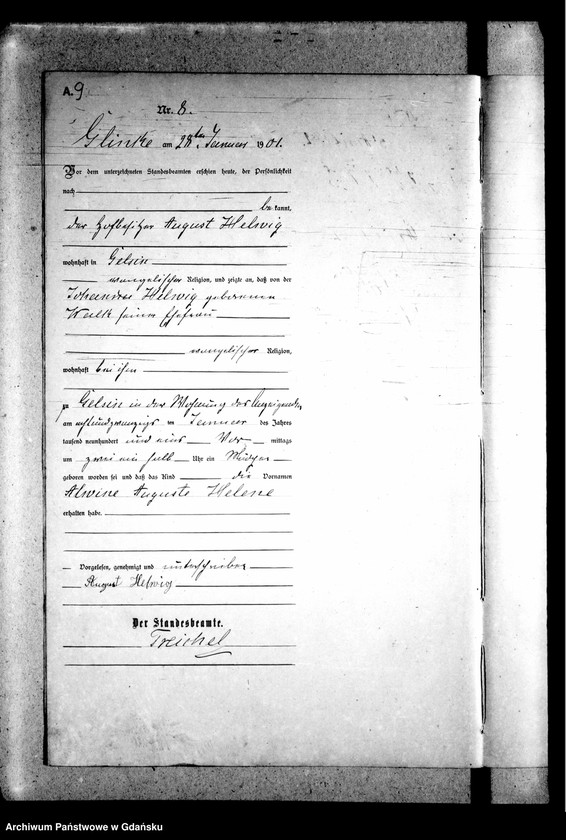 A. 9
Nr. 8.
Glinke am 28ten Januar 1901.
Vor dem unterzeichneten Standesbeamten erschien heute, der Persönlichkeit
nach
be kannt,
der Hofbesitzer August Helwig
wohnhaft in Gelsin
evangelischer Religion, und zeigte an, daß von der
Helwig geborenen
seiner Ehefrau
evangelischer Religion,
wohnhaft bei ihm
zu Gelsin in der Wohnung des Anzeigenden
am achtundzwanzigsten Januar des Jahres
tausend neunhundert und eins Vor mittags
um zwei ein halb Uhr ein Mädchen
geboren worden sei und daß das Kind die Vornamen
Alwine Auguste Helene
erhalten habe.
Vorgelesen, genehmigt und unterschrieben
August Helwig
Der Standesbeamte.
Treichel
Archiwum Państwowe w Gdańsku